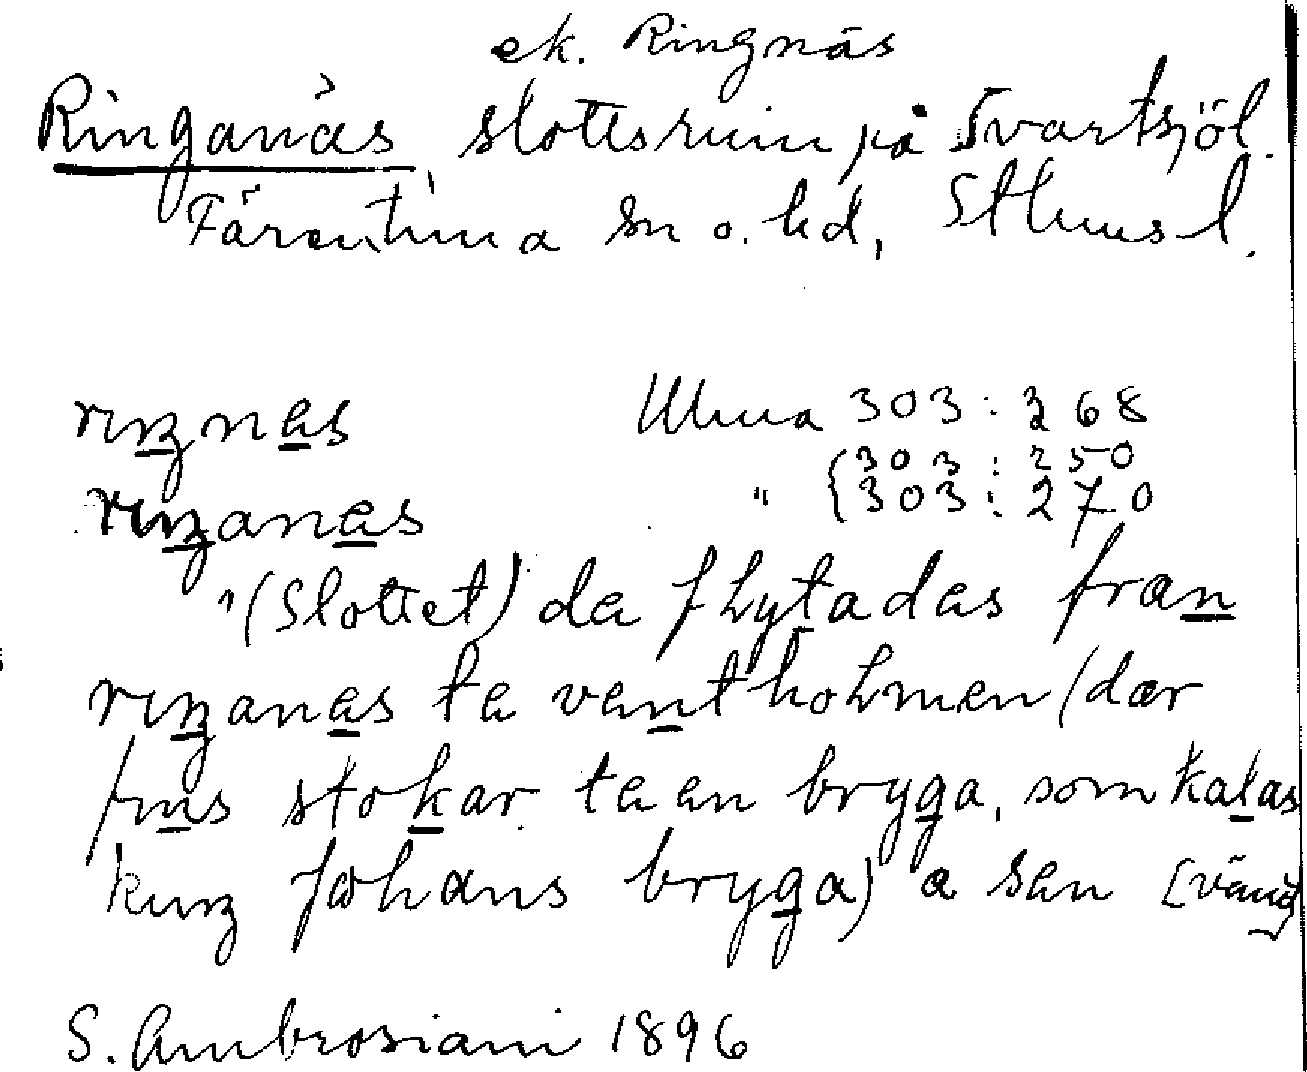 ek. Ringnäs
Ringanäs, slottsruin på Svartsjöl.
Färentuna sn o. hd, Sthms l.
rɩŋnas
Ulvua 303: 268
" {303: 250
303: 270
rɩŋanas
"(Slottet) da flytadas fran
rɩŋanas ta vantholmen (dær
fɩns stokar ta en bryga, som kalas
kuŋ johans bryga) a san [vänd]
S. Ambrosiani 1896